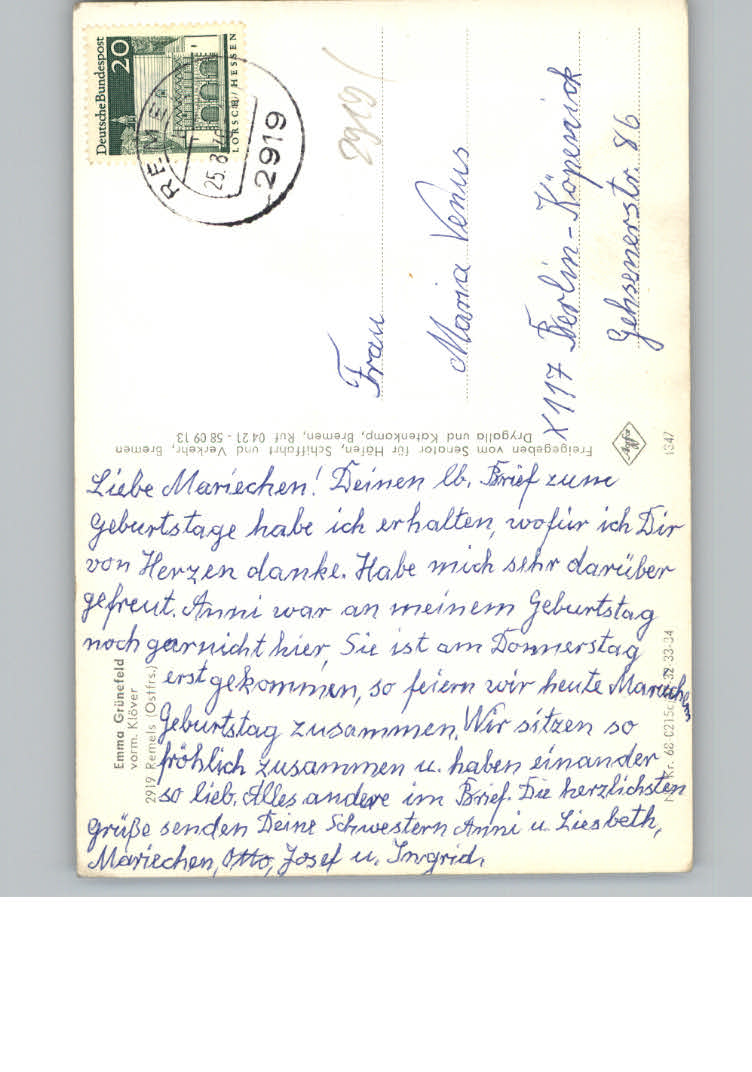 Deutsche Bundespost
20
LORSCH/HESSEN
2919
25.8.
2919
Frau
Maria Venus
X117 Berlin-Köpenick
Gehsenerstr. 86
Freigegeben vom Senator für Häfen, Schiffahrt und Verkehr, Bremen
Drygalla und Katenkamp, Bremen, Ruf 04 21 - 58 09 13
Agfa
1347
Liebe Mariechen! Deinen lb. Brief zum
Geburtstage habe ich erhalten, wofür ich Dir
von Herzen danke. Habe mich sehr darüber
gefreut. Anni war an meinem Geburtstag
noch garnicht hier. Sie ist am Donnerstag
erst gekommen, so feiern wir heute Mariechens
Geburtstag zusammen, Wir sitzen so
fröhlich zusammen u. haben einander
so lieb. Alles andere im Brief. Die herzlichsten
Grüße senden Deine Schwestern Anni u. Liesbeth,
Mariechen, Otto, Josef u. Ingrid.
Emma Grünefeld
vorm. Klöver
2919 Remels (Ostfrs.)